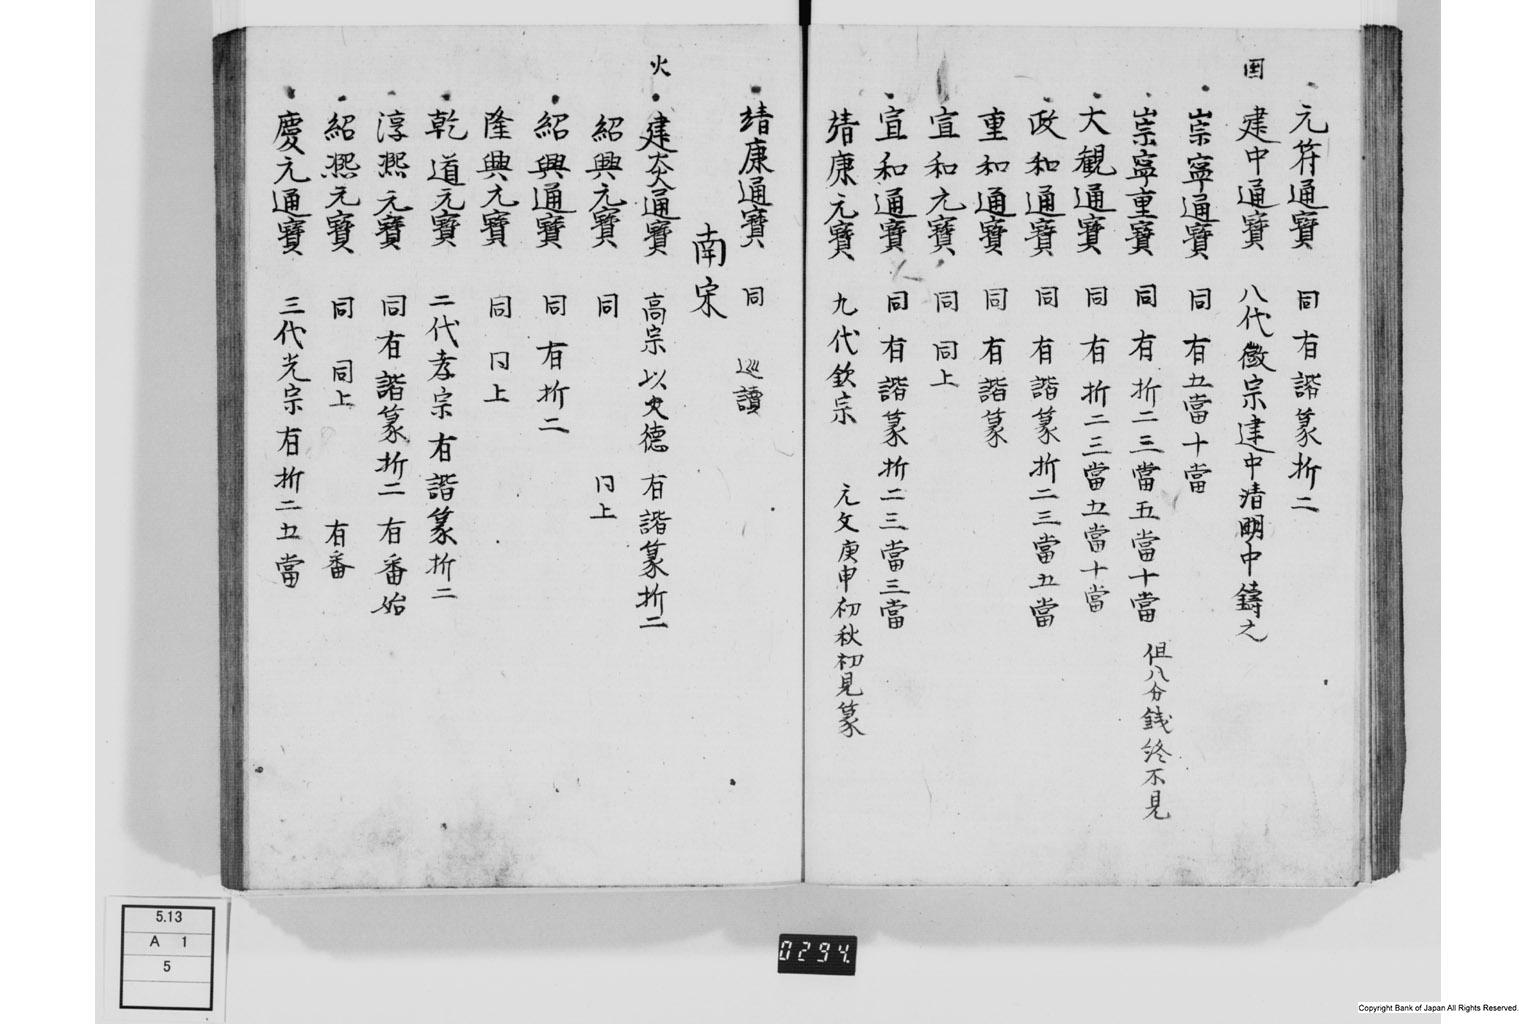 元符通寳 同 有諧篆折二
国 建中通寳 八代徽宗建中清明中鋳之
崇寧通寳 同 有五當十當
崇寧重寳 同 有折二三當五當十當 但八分銭終不見
大觀通寳 同 有折二三當五當十當
政和通寳 同 有諧篆折二三當五當
重和通寳 同 有諧篆
宣和元寳 同 同上
宣和通寳 同 有諧篆折二三當三當
靖康元寳 九代欽宗 元文庚申初秋初見篆
靖康通寳 同 巡讀
南宋
火 建炎通寳 高宗以火德 有諧篆折二
紹興元寳 同 同上
紹興通寳 同 有折二
隆興元寳 同 同上
乾道元寳 二代孝宗 有諧篆折二
淳熙元寳 同 有諧篆折二 有番始
紹熙元寳 同 同上 有番
慶元通寳 三代光宗 有折二五當
5.13
A 1
5
0294.
Copyright Bank of Japan All Rights Reserved.